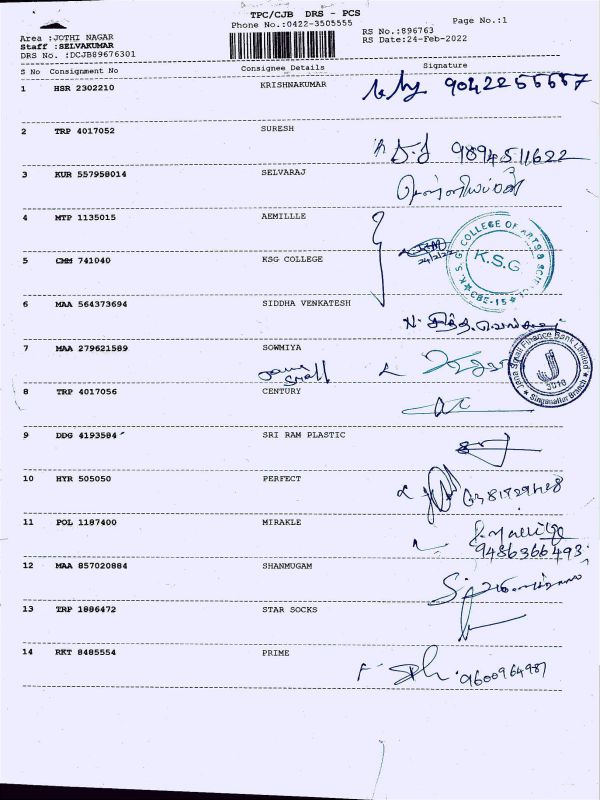 TPC/CJB DRS - PCS
Phone No.:0422-3505555
Page No.:1
Area :JOTHI NAGAR
Staff :SELVAKUMAR
DRS No. :DCJB89676301
RS No.:896763
RS Date:24-Feb-2022
S No Consignment No Consignee Details Signature
1 HSR 2302210 KRISHNAKUMAR
2 TRP 4017052 SURESH
9894511622
3 KUR 557958014 SELVARAJ
4 MTP 1135015 AEMILLLE
5 CMM 741040 KSG COLLEGE
24/2/22
K.S.G COLLEGE OF ARTS & SCIE
K.S.G
CBE-15
6 MAA 564373694 SIDDHA VENKATESH
7 MAA 279621589 SOWMIYA
Jana Small Finance Bank Limited
Singanallur Branch
Jana Small
8 TRP 4017056 CENTURY
9 DDG 4193584 SRI RAM PLASTIC
10 HYR 505050 PERFECT
11 POL 1187400 MIRAKLE
9486366493
12 MAA 857020884 SHANMUGAM
13 TRP 1886472 STAR SOCKS
14 RKT 8485554 PRIME
9600964987